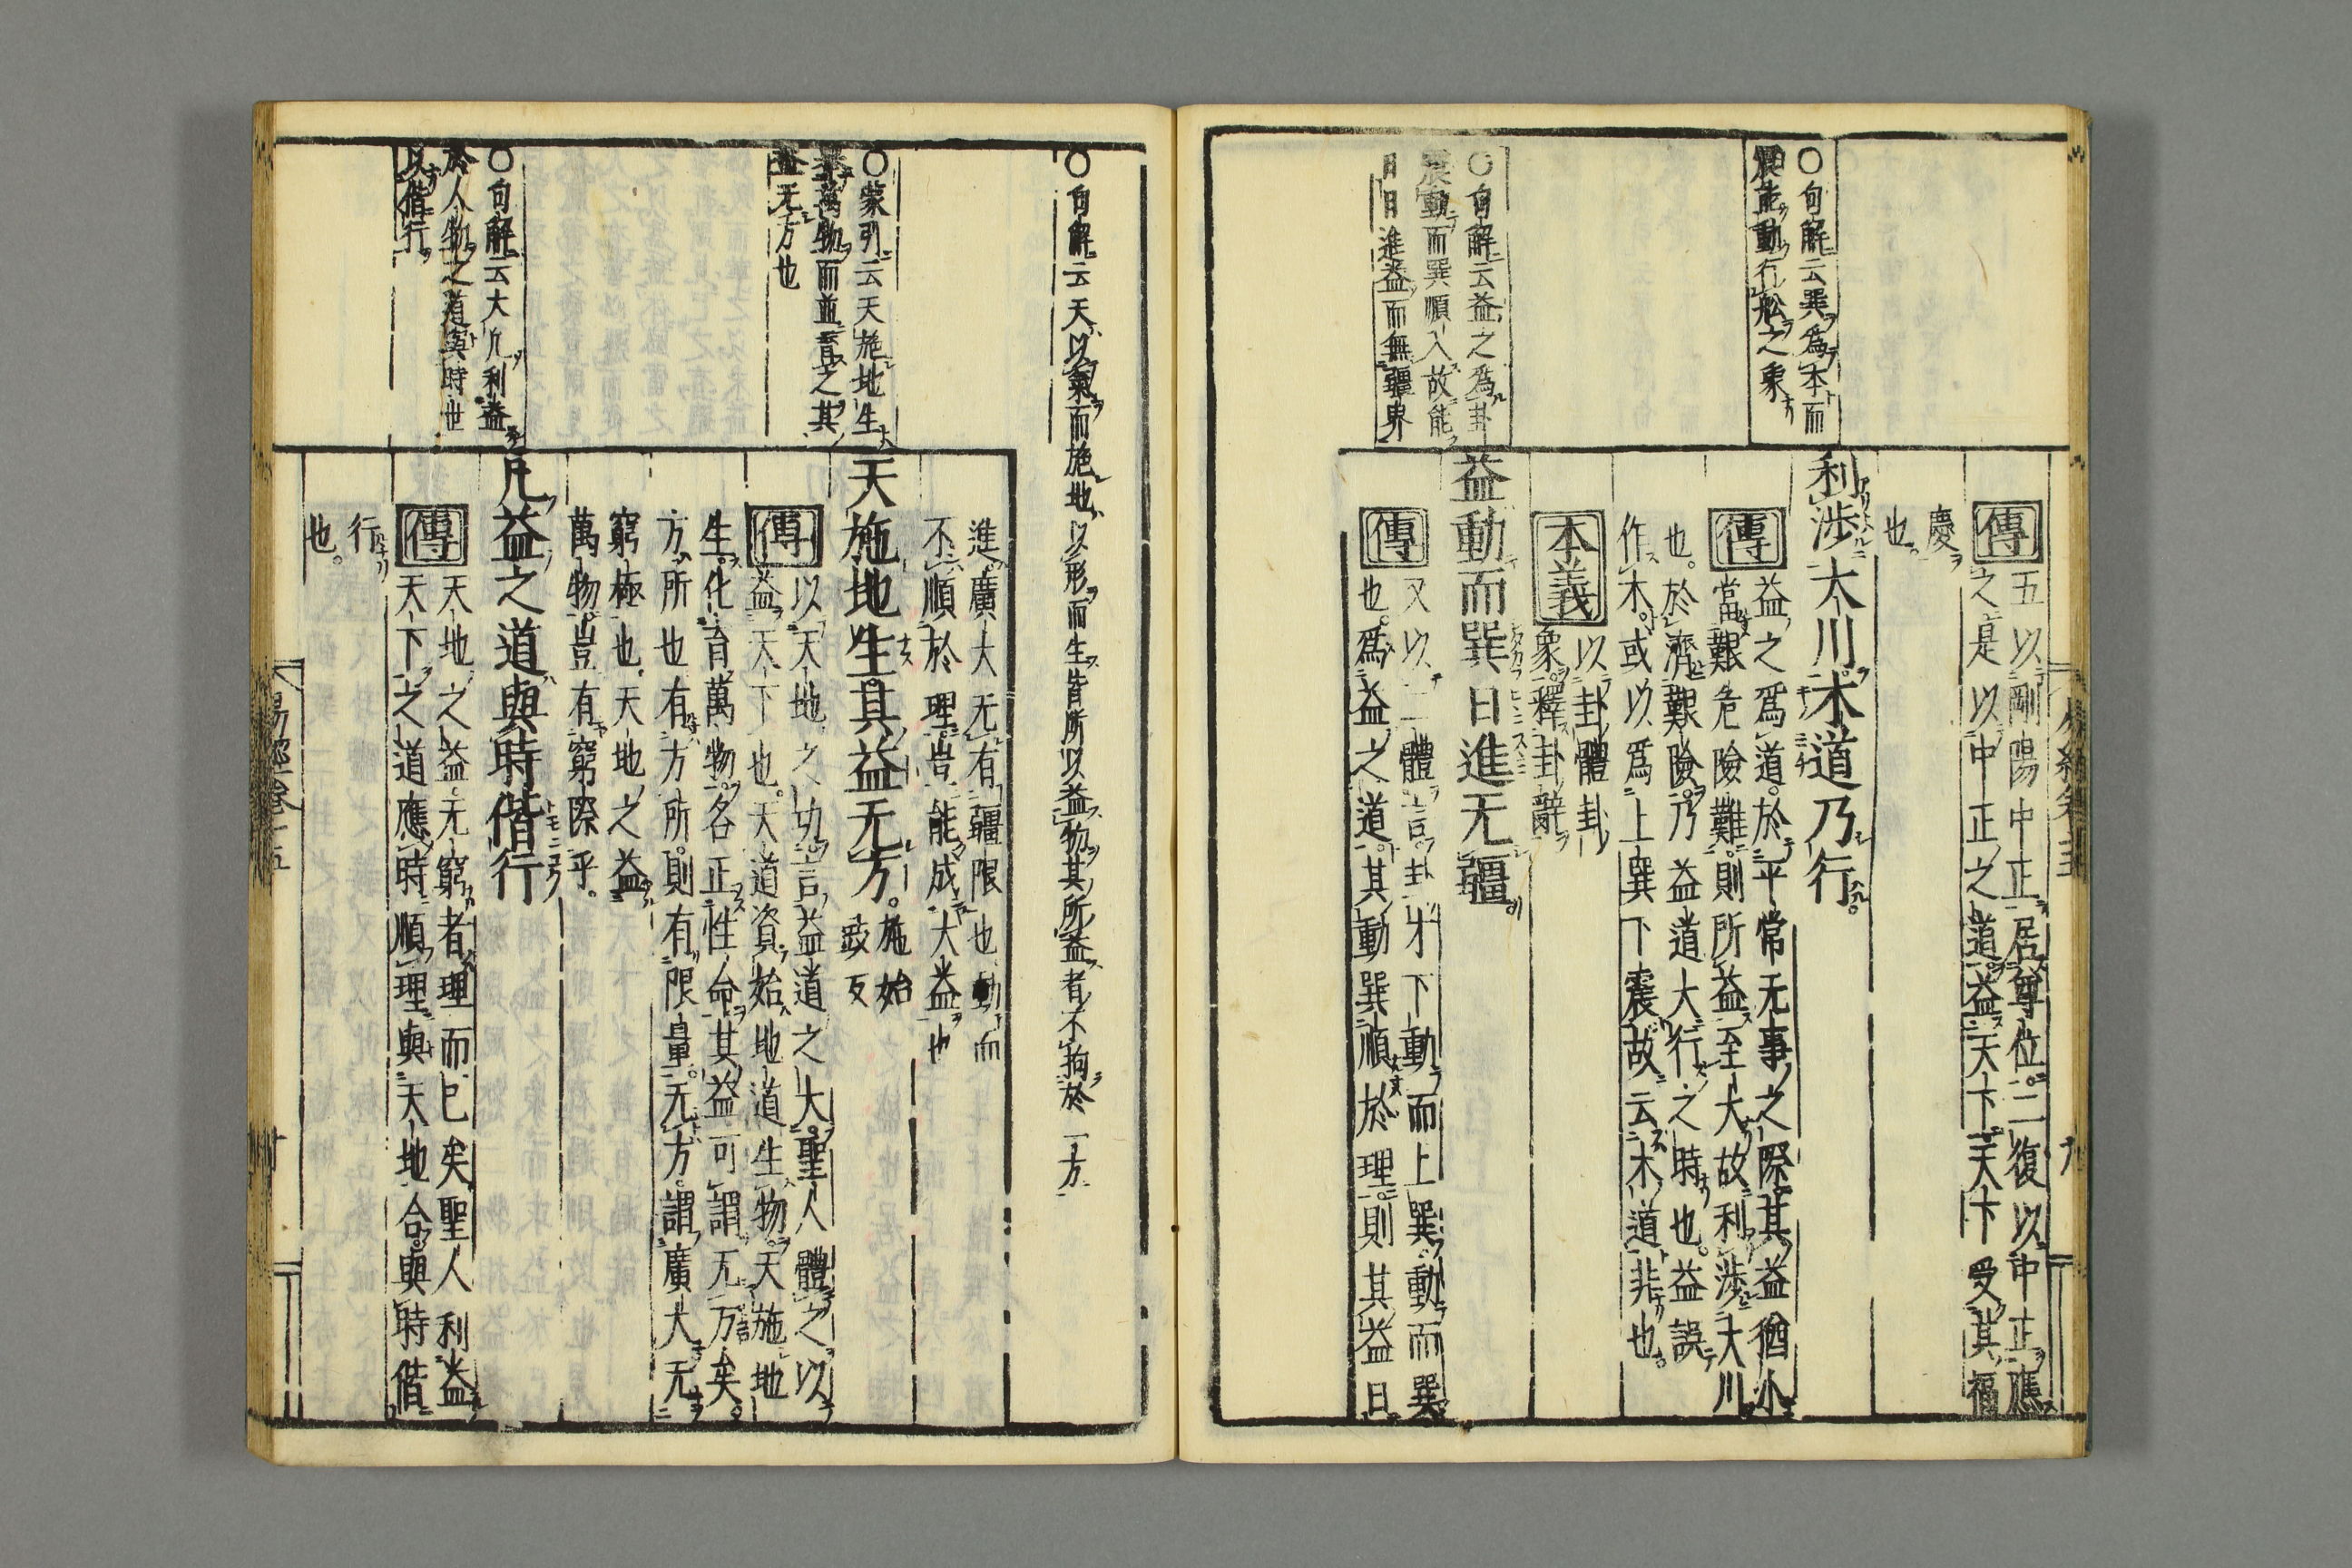 傳
五以剛陽中正居尊位。二復以中正應
之是以中正之道益天下天下受其福
慶
也。
○句解云巽爲木而
震能動行舩之象
利渉大川木道乃行。
傳
益之爲道於平常无事之際其益猶小
當艱危險難則所益至大故利渉大川
也。於濟艱險乃益道大行之時也。益誤
作木或以爲上巽下震故云木道非也。
本義
以卦體卦
象釋卦辭
○句解云益之爲卦
震動而巽順入故能
日日進益而無疆界
益動而巽日進无疆
傳
又以二體言卦才下動而上巽動而巽
也。爲益之道其動巽順於理則其益日
○句解云天以氣而施地以形而生皆所以益物其所益者不拘於一方
進廣大无有疆限也動而
不順於理豈能成大益也
○蒙引云天施地生
擧萬物而並育之其
益无方也
天施地生其益无方。施始豉反
傳
以天地之功言益道之大聖人體之以
益天下也。天道資始地道生物天施地
生化育萬物各正性命其益可謂无方矣。
方所也有方所則有限量。无方謂廣大无
窮極也天地之益
萬物豈有窮際乎。
○句解云大凡利益
於人物之道與時世
以偕行
凡益之道與時偕行
傳
天地之益无窮者理而已矣聖人利益
天下之道應時順理與天地合與時偕
行
也。
易經卷十五